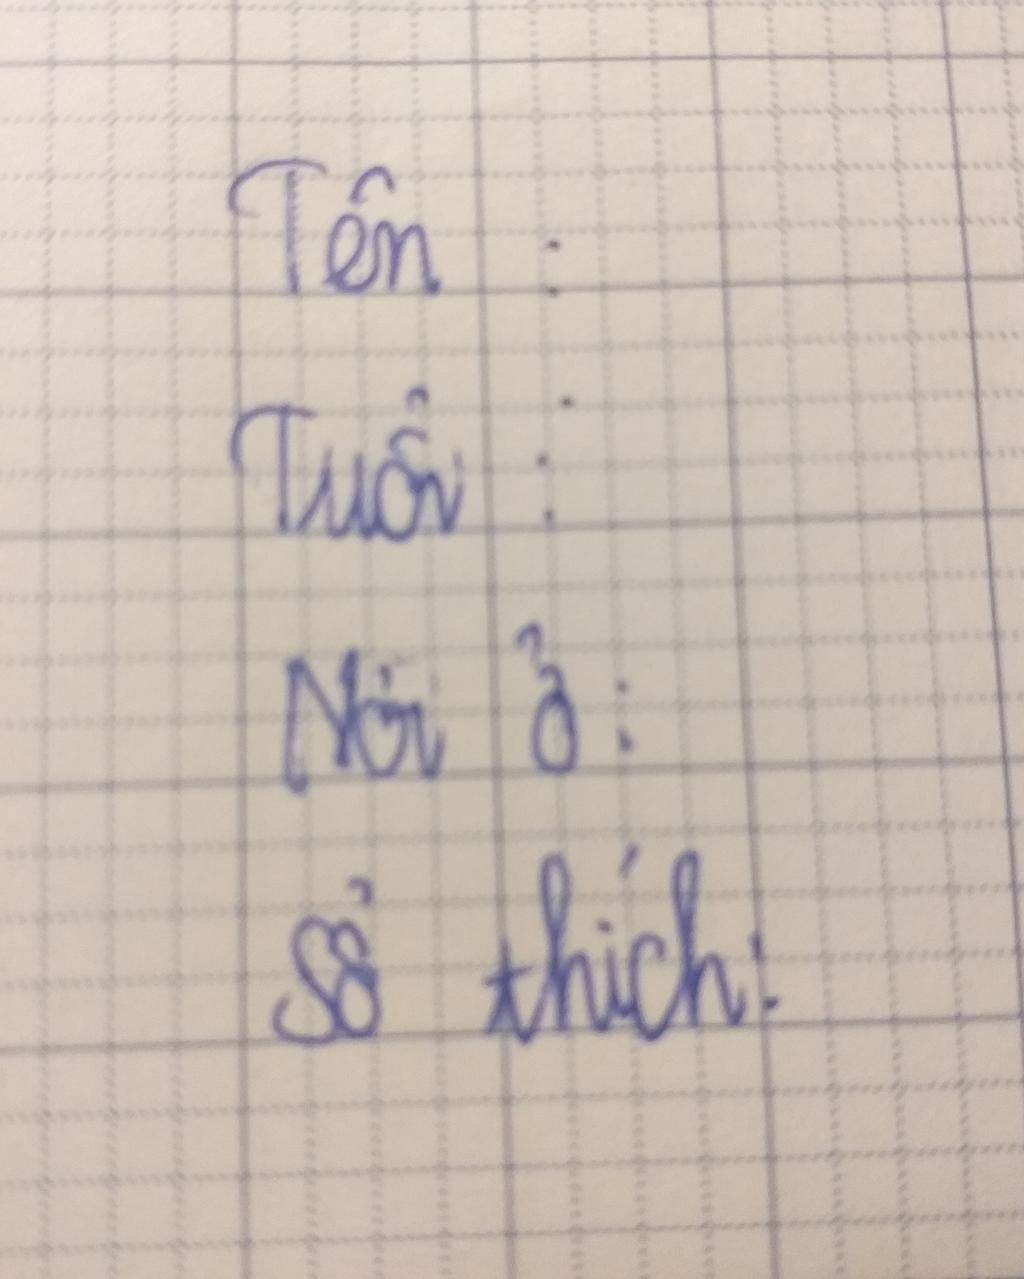 Tên :
Tuổi :
Nơi ở :
Sở thích :